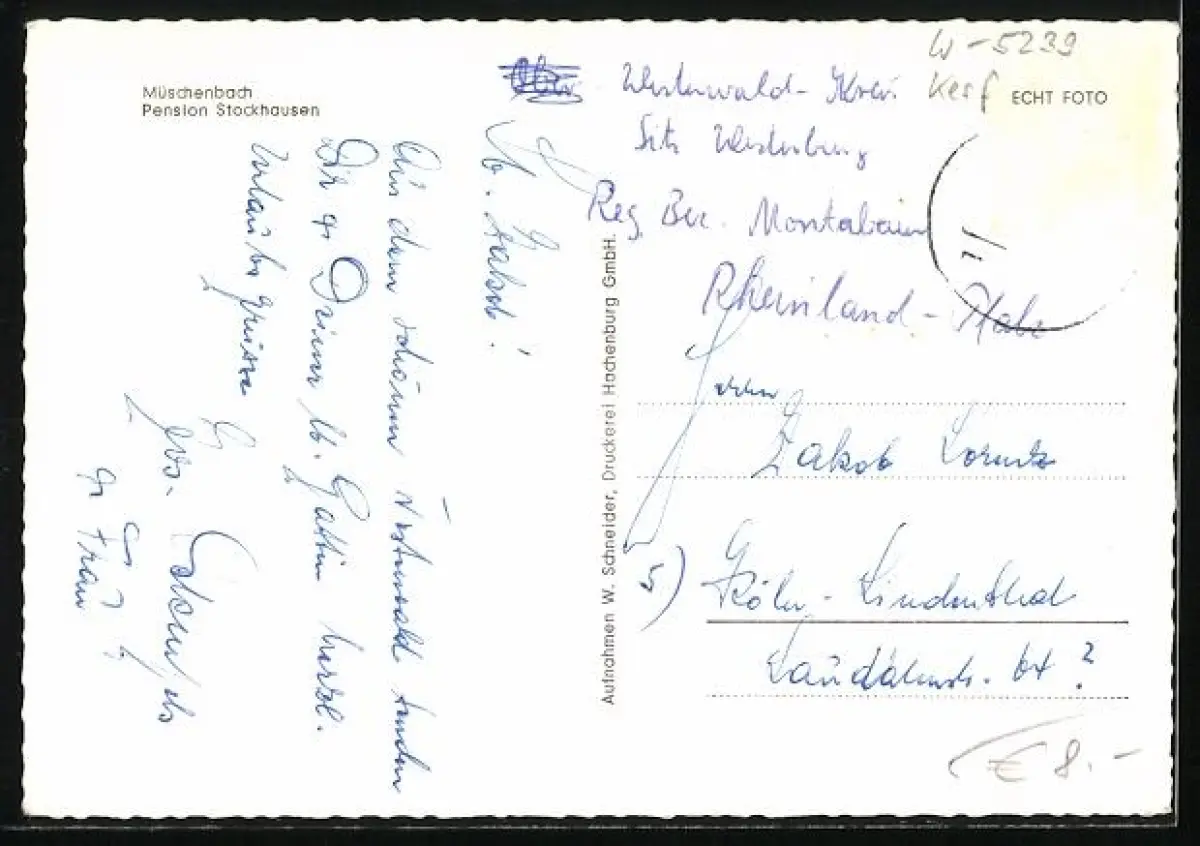 Müschenbach
Pension Stockhausen
Lb. Jakob!
Aus dem schönen Westerwald senden
Dir u. Deiner lb. Gattin herzl.
Urlaubsgrüsse
u. Frau
Aufnahmen W. Schneider, Druckerei Hachenburg GmbH.
W-5239
Westerwald-Kreis
ECHT FOTO
Sitz Westerburg
Reg. Bez. Montabaur
Rheinland-Pfalz
Herrn
Jakob Lorentz
5) Köln-Lindenthal
64?
€ 8.-